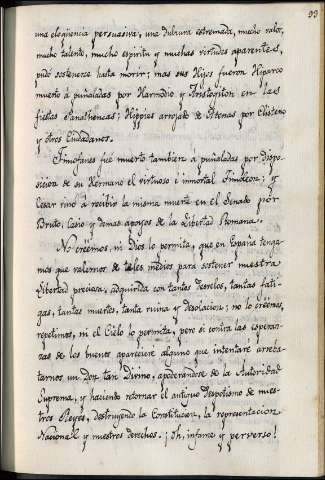 93
una eloqüencia persuasiva, una dulzura estremada, mucho valor,
mucho talento, mucho espiritu y muchas virtudes aparentes,
pudó sostenerse hasta morir; mas sus Hijos fueron Hiparco
muerto á puñaladas por Harmodio y Aristogiton en las
fiestas Panathencas; Hippies arrojado de Atenas por Clisteno
y otros Ciudadanos.
Timofánes fué muerto tambien á puñaladas por dispo-
sicion de su Hermano el virtuoso é inmortal Timoleon; y
Cesar vinó á recibir la misma muerte en el Senado por
Bruto, Casio y demas apoyos de la Libertad Romana.
No creémos, ni Dios lo permita, que en España tenga-
mos que valernos de tales medios para sostener nuestra
Libertad preciosa, adquirida con tantos desvelos, tantas fati-
gas, tantas muertes, tanta ruina y desolacion; no lo creémos,
repetimos, ni el Cielo lo permita, pero si contra las esperan-
zas de los buenos apareciere alguno que intentáre arreba-
tarnos un Don tan Divino, apoderandose de la Autoridad
Suprema, y haciendo retornar el antiguo despotismo de nues-
tros Reyes, destruyendo la Constitucion, la representacion
Nacional y nuestros derechos. ¡Oh, infame y perverso!